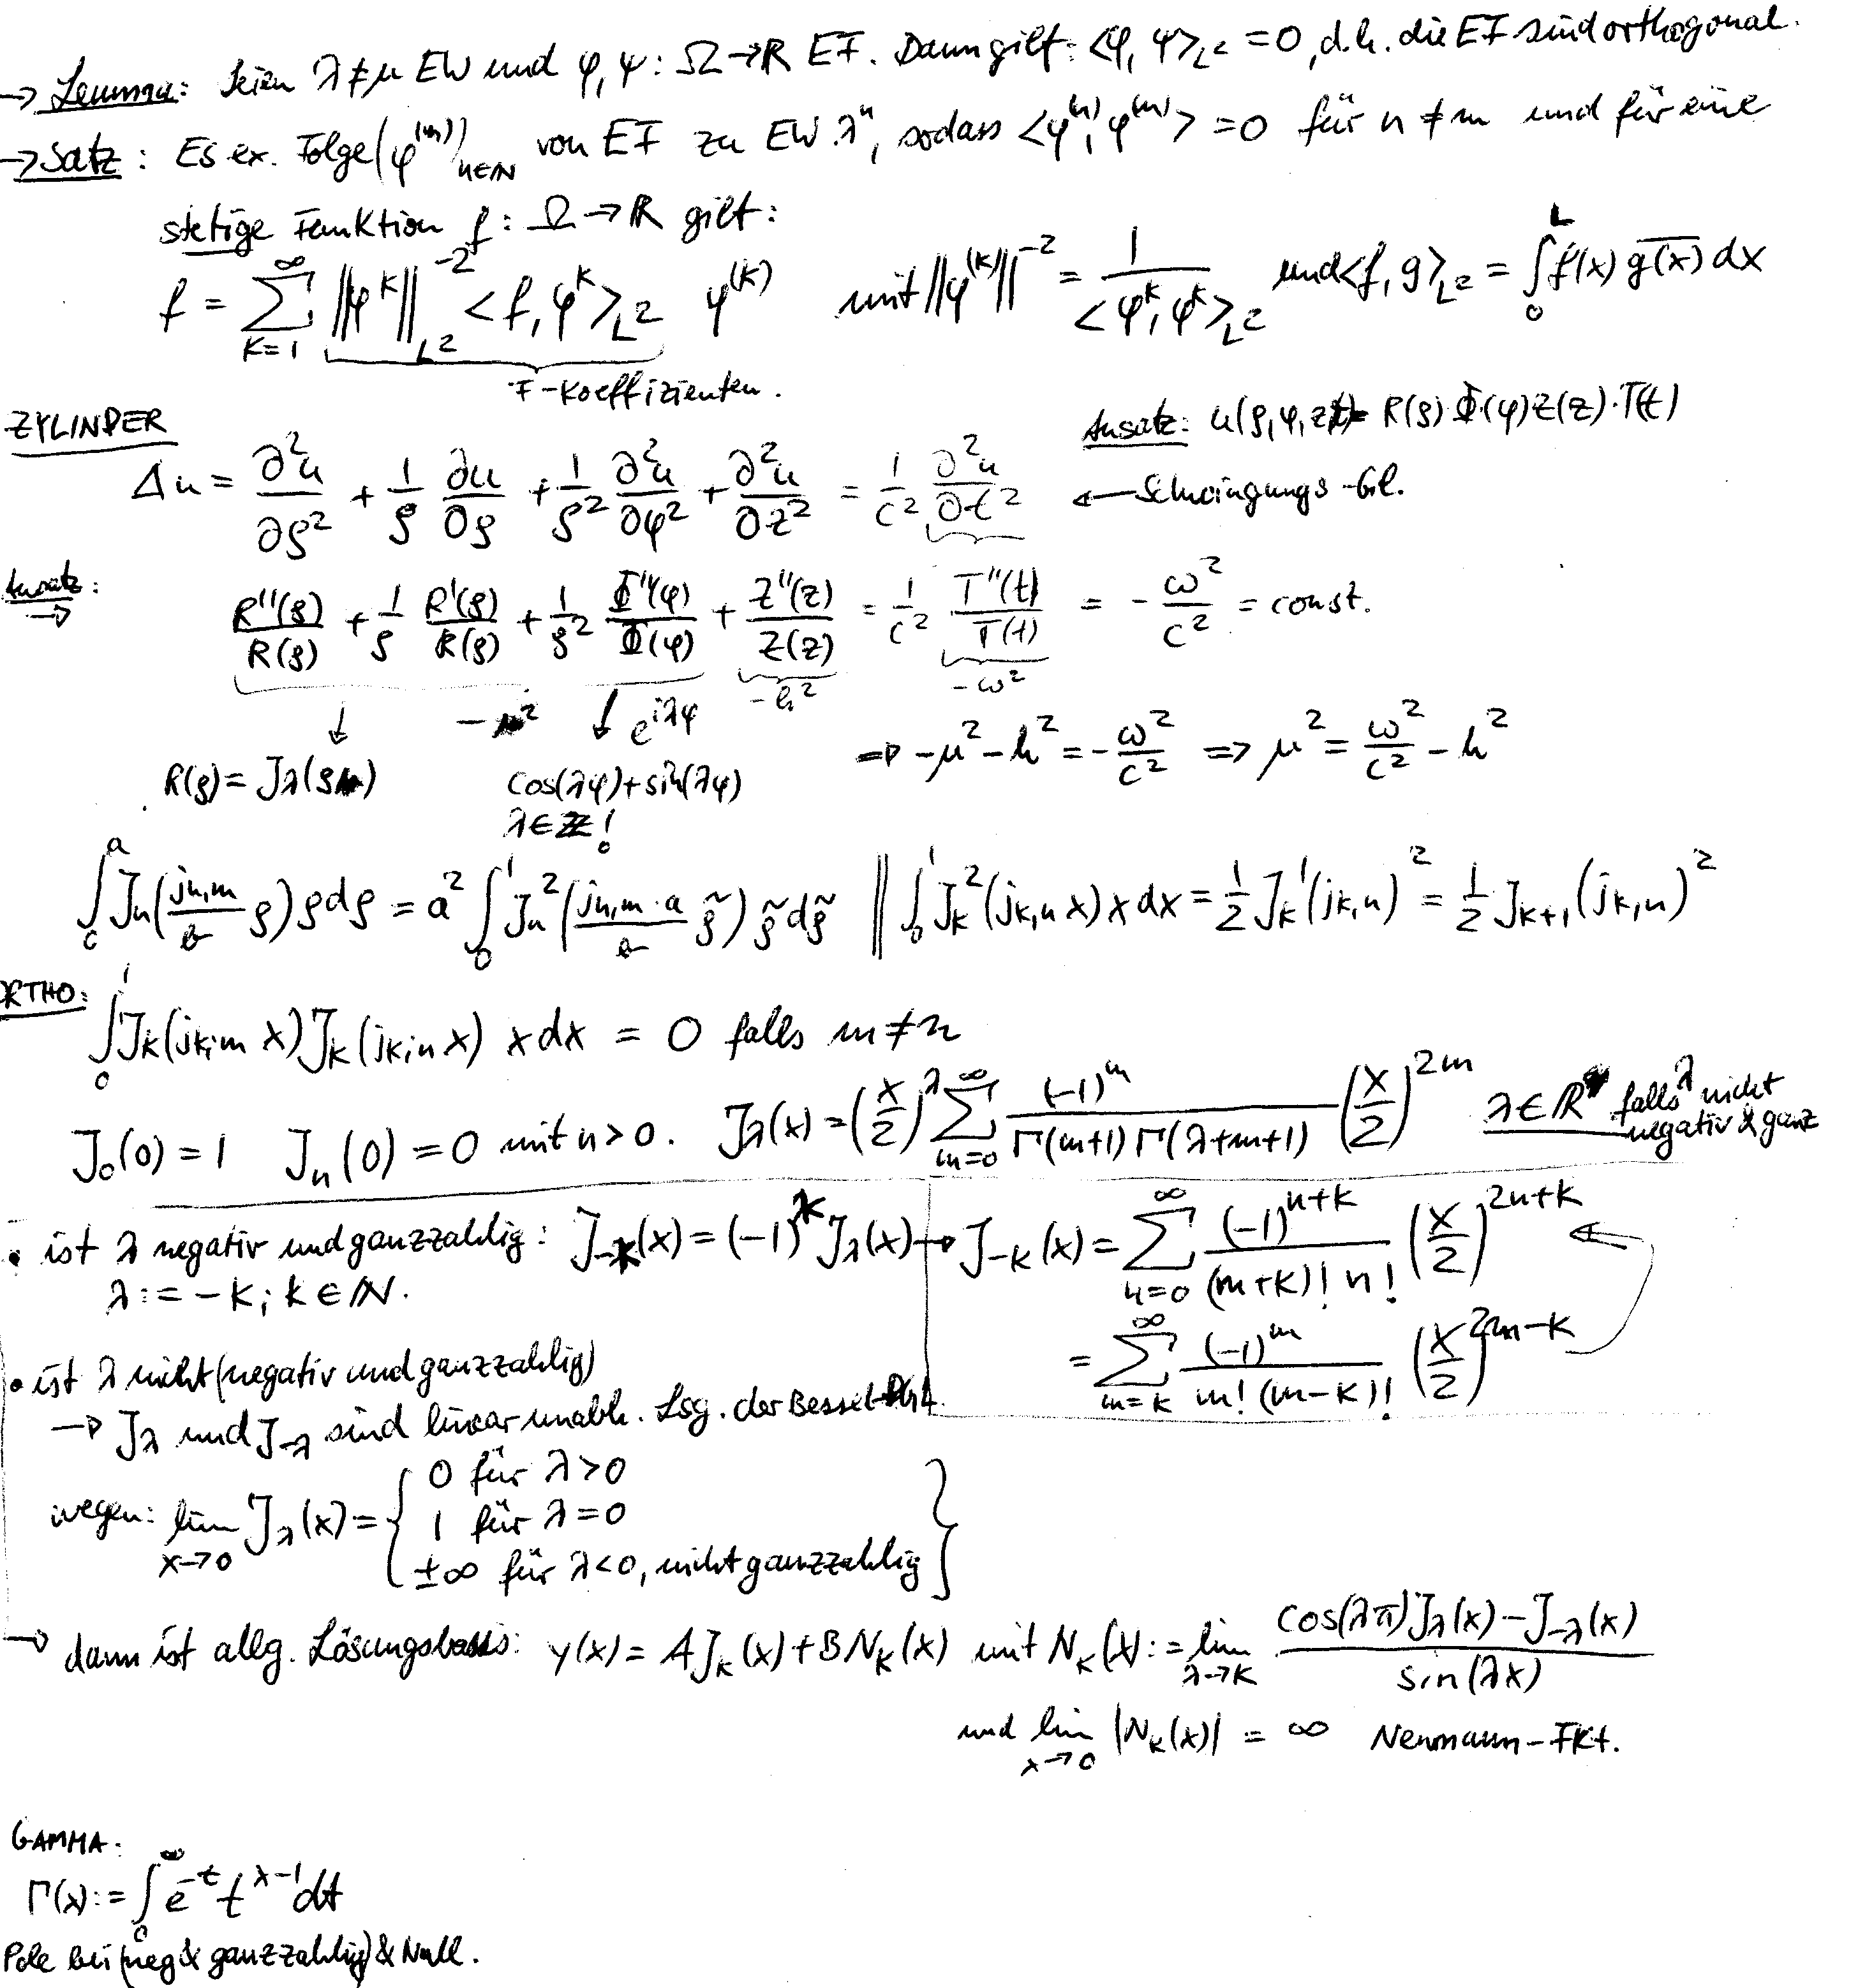 → Lemma: Seien λ ≠ μ EW und φ, ψ: Ω → ℝ EF. Dann gilt: <φ, ψ>_L² = 0, d.h. die EF sind orthogonal.
→ Satz: Es ex. Folge (φ^(n))_n∈ℕ von EF zu EW λ^n, sodass <φ^(n), φ^(m)> = 0 für n ≠ m und für eine
stetige Funktion f: Ω → ℝ gilt:
f = Σ_{k=1}^∞ ‖φ^k‖^-2_L² <f, φ^k>_L² φ^(k) mit ‖φ^(k)‖^-2 = 1/<φ^k, φ^k>_L² und <f, g>_L² = ∫_0^L f(x) \overline{g(x)} dx
F-Koeffizienten.
ZYLINDER
Ansatz: u(ρ,φ,z,t) = R(ρ)·Φ(φ)Z(z)·T(t)
Δu = ∂²u/∂ρ² + 1/ρ ∂u/∂ρ + 1/ρ² ∂²u/∂φ² + ∂²u/∂z² = 1/c² ∂²u/∂t² ← Schwingungs-Gl.
Ansatz: →
R''(ρ)/R(ρ) + 1/ρ R'(ρ)/R(ρ) + 1/ρ² Φ''(φ)/Φ(φ) + Z''(z)/Z(z) = 1/c² T''(t)/T(t) = -ω²/c² = const.
-μ² -h² -ω²
↓ ↓ e^{iλφ}
⇒ -μ²-h² = -ω²/c² ⇒ μ² = ω²/c² - h²
R(ρ) = J_λ(ρμ) cos(λφ)+sin(λφ)
λ∈ℤ!
∫_0^a J_n(j_{n,m}/a ρ) ρdρ = a² ∫_0^1 J_n²(j_{n,m}·a/a ρ̃) ρ̃dρ̃ ‖ ∫_0^1 J_k²(j_{k,n} x) x dx = 1/2 J_k'(j_{k,n})² = 1/2 J_{k+1}(j_{k,n})²
ORTHO:
∫_0^1 J_k(j_{k,m} x) J_k(j_{k,n} x) x dx = 0 falls m ≠ n
J_0(0) = 1 J_n(0) = 0 mit n > 0. J_λ(x) = (x/2)^λ Σ_{m=0}^∞ (-1)^m/(Γ(m+1) Γ(λ+m+1)) (x/2)^{2m} λ∈ℝ falls λ nicht
negativ & ganz
• ist λ negativ und ganzzahlig: J_{-k}(x) = (-1)^k J_λ(x) → J_{-k}(x) = Σ_{n=0}^∞ (-1)^{n+k}/((n+k)! n!) (x/2)^{2n+k}
λ := -k; k∈ℕ.
= Σ_{m=k}^∞ (-1)^m/(m! (m-k)!) (x/2)^{2m-k}
• ist λ nicht (negativ und ganzzahlig)
→ J_λ und J_{-λ} sind linear unabh. Lsg. der Bessel-Dgl.
wegen: lim_{x→0} J_λ(x) = { 0 für λ>0
1 für λ=0
±∞ für λ<0, nicht ganzzahlig }
→ dann ist allg. Lösungsbasis: y(x) = A J_k(x) + B N_k(x) mit N_k(x) := lim_{λ→k} (cos(λπ) J_λ(x) - J_{-λ}(x))/sin(λx)
und lim_{x→0} |N_k(x)| = ∞ Neumann-Fkt.
GAMMA:
Γ(x) := ∫_0^∞ e^{-t} t^{x-1} dt
Pole bei (neg & ganzzahlig) & Null.